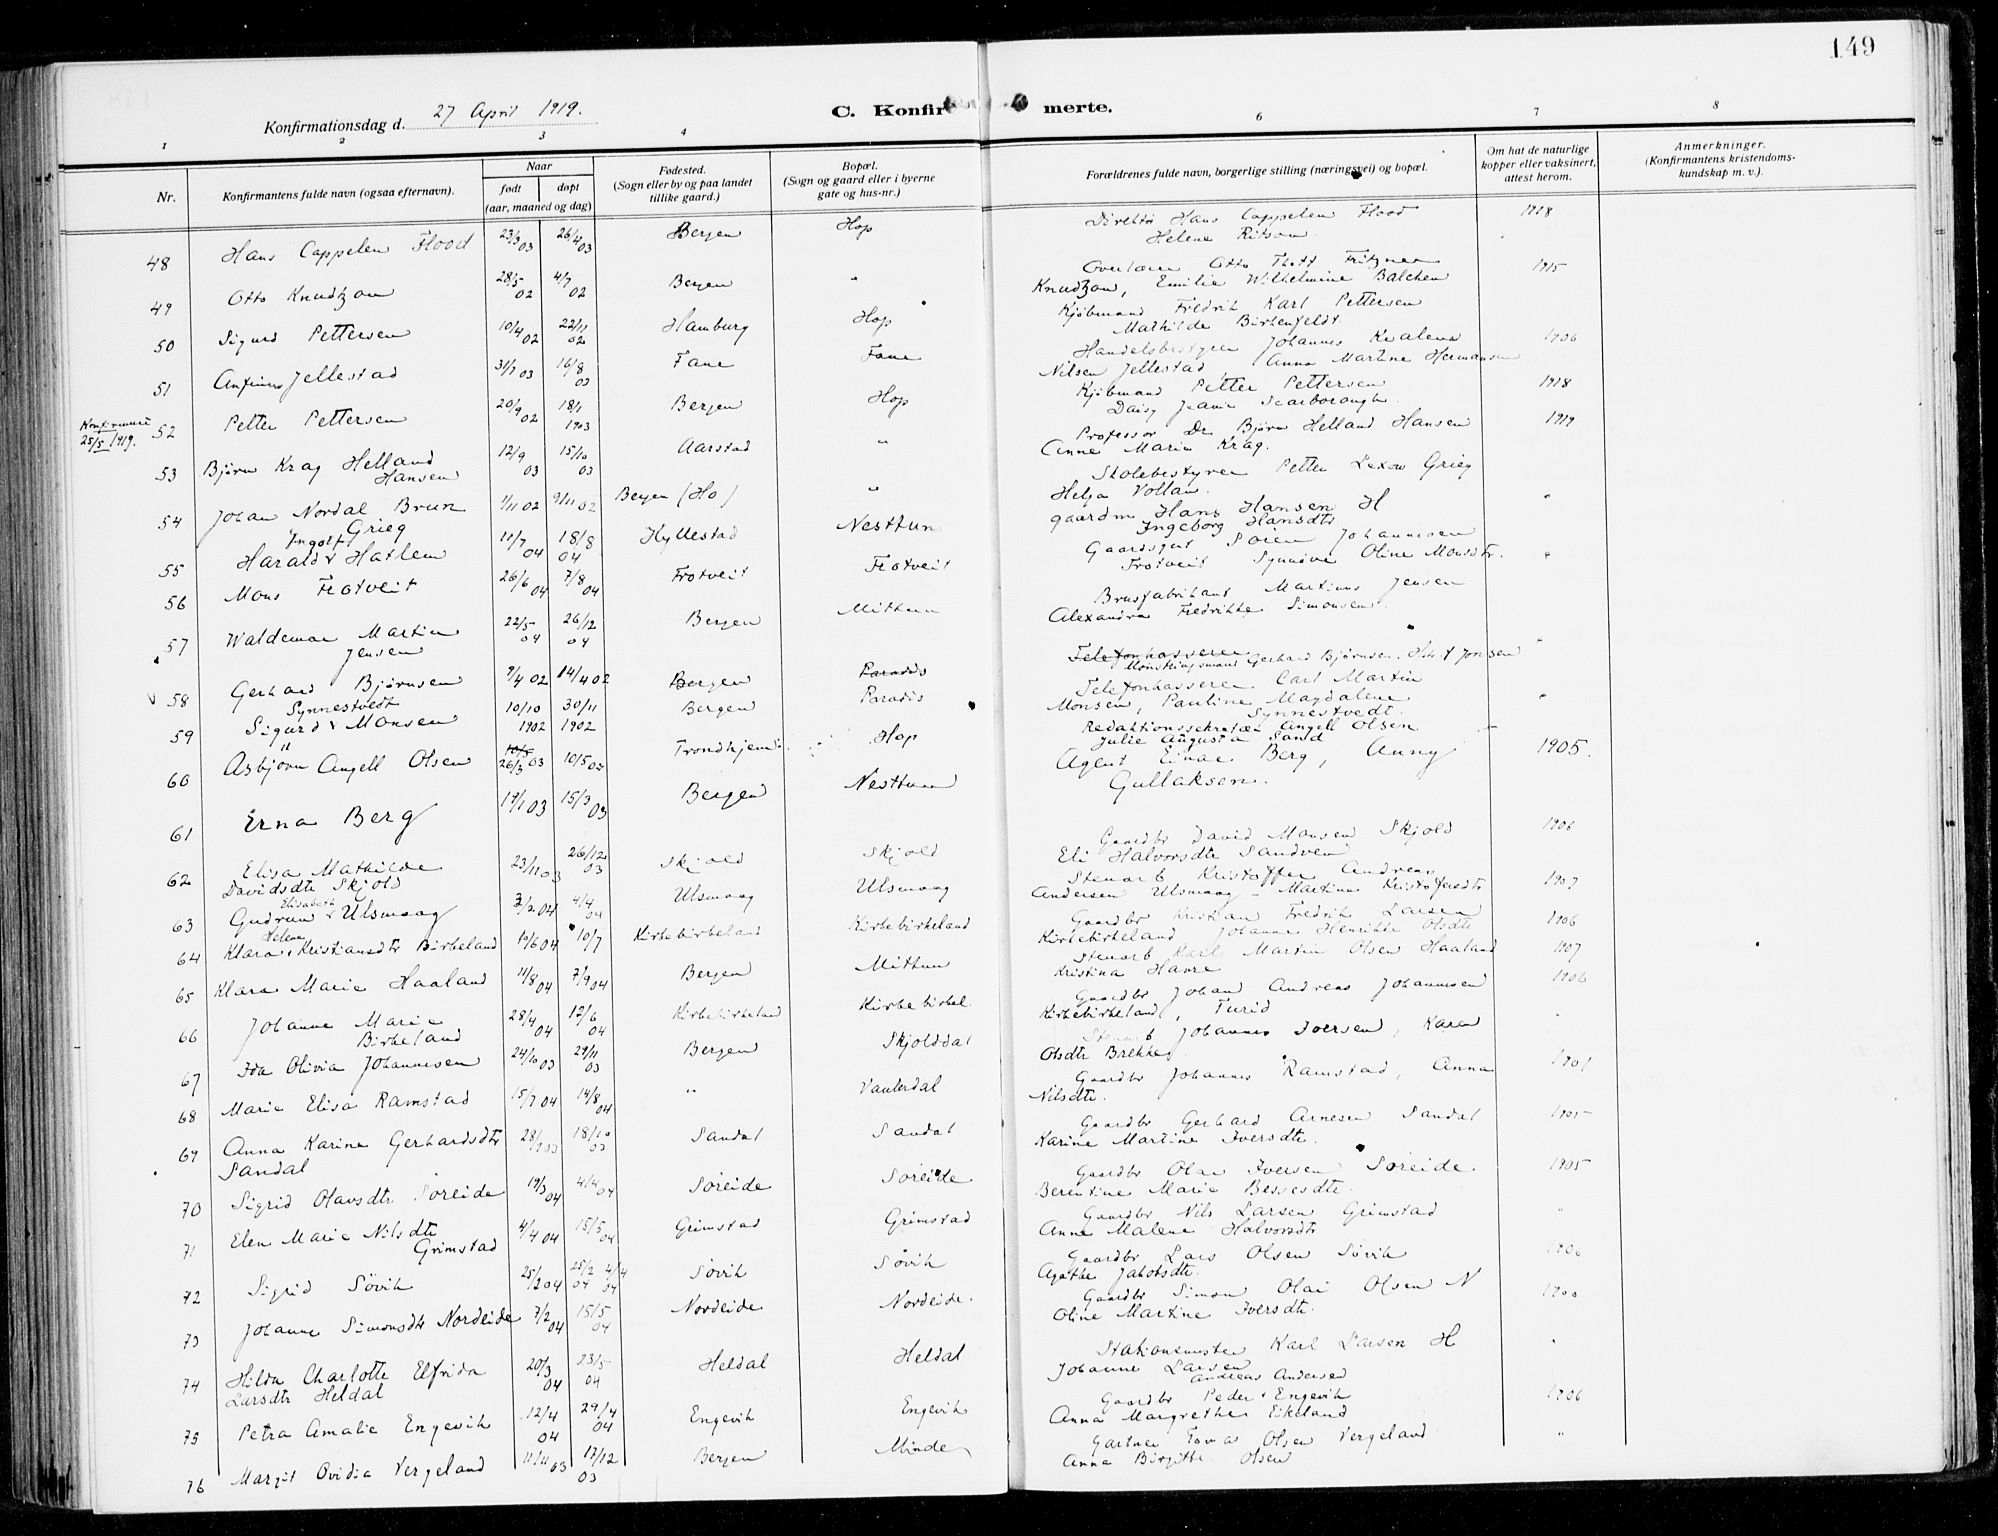 149
Konfirmationsdag d. 27 April 1919.
C. Konfir merte.
1 2 3 4 6 7 8
Nr.
Konfirmantens fulde navn (ogsaa efternavn).
Naar
født døpt
(aar, maaned og dag)
Fødested.
(Sogn eller by og paa landet
tillike gaard.)
Bopæl.
(Sogn og gaard eller i byerne
gate og hus-nr.)
Forældrenes fulde navn, borgerlige stilling (næringsvei) og bopæl.
Om hat de naturlige
kopper eller vaksinert,
attest herom.
Anmerkninger.
(Konfirmantens kristendoms-
kundskap m. v.).
48 Hans Cappelen Flood 23/3 03 26/4 03 Bergen Hop Direktør Hans Cappelen Flood 1918
Helene Ritson
49 Otto Knudtzon 28/5 02 4/7 02 Bergen " Overlærer Otto Thott Fritzner 1915
Knudtzon, Emilie Wilhelmine Balchen
50 Sigurd Pettersen 10/4 02 22/11 02 Hamburg Hop Kjøbmand Fredrik Karl Pettersen
Mathilde Birkenfeldt.
51 Anfinn Jellestad 31/1 03 16/8 03 Fane Fane Handelsbestyrer Johannes Kvalena 1906
Nilsen Jellestad, Anna Martine Hermansen
Konfirmeret
25/5 1919.
52 Petter Pettersen 20/9 02 18/1 1903 Bergen Hop Kjøbmand Petter Pettersen 1918
Daisy Jeanie Scarborough.
53 Bjørn Krag Helland
Hansen 12/9 03 15/10 03 Aarstad " Professor Dr Bjørn Helland Hansen 1919
Anne Marie Krag.
54 Johan Nordal Brun
Grieg 1/11 02 9/11 02 Bergen (Ho) " Skolebestyrer Petter Lexow Grieg
Helga Vollan.
55 Ingolf
Harald Hatlem 11/7 04 18/8 04 Hyllestad Nesttun gaardm Hans Hansen H "
Ingeborg Hansdtr
56 Mons Frotveit 26/6 04 7/8 04 Frotveit Frotveit Gaardsgut Søren Johannesen
Frotveit Synnøve Oline Monsdtr. "
57 Waldemar Martin
Jensen 22/5 04 26/12 04 Bergen Mittun Brusfabrikant Martinus Jensen
Alexandra Fredrikke Simonsen.
v 58 Gerhard Bjørnsen 9/4 02 14/4 02 Bergen Paradis Telefonkasserer "
Mønstringsmand Gerhard Bjørnsen.
59 Synnestvedt
Sigurd Monsen 10/10 1902 30/11 1902 Bergen Paradis Telefonkasserer Carl Martin "
Monsen, Pauline Magdalene
Synnestvedt.
60 Asbjørn Angell Olsen 10/5 26/3 03 10/5 03 Trondhjem Hop Redaktionssekretær Angell Olsen
Julie Augusta Sand
61 Erna Berg 17/1 03 15/3 03 Bergen Nesttun Agent Einar Berg, Anny 1905.
Gullaksen.
62 Elisa Mathilde
Davidsdtr Skjold 23/11 03 26/12 03 Skjold Skjold Gaardbr David Monsen Skjold 1906
Eli Halvorsdtr Sandven
63 Elisabeth
Gudrun Ulsmaag 3/2 04 4/4 04 Ulsmaag Ulsmaag Stenarb Kristoffer Andreas 1907
Andersen Ulsmaag - Martine Kristofersdtr
64 Helene
Klara Kristiansdtr Birkeland 19/6 04 10/7 Kirkebirkeland Kirkebirkeland Gaardbr Kristian Fredrik Larsen 1906
Kirkebirkeland Johanne Henrikke Olsdtr
65 Klara Marie Haaland 11/8 04 7/9 04 Bergen Mittun Stenarb Karl Martin Olsen Haaland 1907
Kristina Havre
66 Johanne Marie
Birkeland 28/4 04 12/6 04 Kirkebirkeland Kirkebirkel. Gaardbr Johan Andreas Johannesen 1906
Kirkebirkeland, Turid
67 Ida Olivia Johannesen 24/10 03 29/11 03 Bergen Skjolddal Stenarb Johannes Iversen, Kara "
Olsdtr Brekke
68 Marie Elisa Ramstad 15/7 04 14/8 04 " Vanterdal Gaardbr Johannes Ramstad, Anna
Nilsdtr.
69 Anna Karine Gerhardsdtr
Sandal 18/10 03 Sandal Sandal Gaardbr Gerhard Arnesen Sandal 1905
Karine Martine Iversdtr.
70 Sigrid Olavsdtr Søreide 19/3 04 4/4 04 Søreide Søreide Gaardbr Olai Iversen Søreide 1905
Berentine Marie Bessesdtr.
71 Elen Marie Nilsdtr
Grimstad 4/4 04 15/5 04 Grimstad Grimstad Gaardbr Nils Larsen Grimstad "
Anne Malene Halvorsdtr
72 Sigrid Søvik 25/2 04 25/2 04 4/4 04 Søvik Søvik Gaardbr Lars Olsen Søvik 1906
Agathe Jakobsdtr.
73 Johanne Simonsdtr Nordeide 7/2 04 15/5 04 Nordeide Nordeide. Gaardbr Simon Olai Olsen N
Oline Martine Iversdtr.
74 Hilda Charlotte Elfrida
Larsdtr Heldal 20/3 04 23/5 04 Heldal Heldal Stationsmster Karl Larsen H "
Johanne Larsen
75 Petra Amalie Engevik 12/4 04 29/4 04 Engevik Engevik Andreas Andersen
Gaardbr Peder Engevik 1906
Anna Margrethe Eikeland
76 Margit Ovidia Vergeland 11/11 03 17/12 03 Bergen Minde Gartner Tomas Olsen Vergeland "
Anna Birgitte Olsen